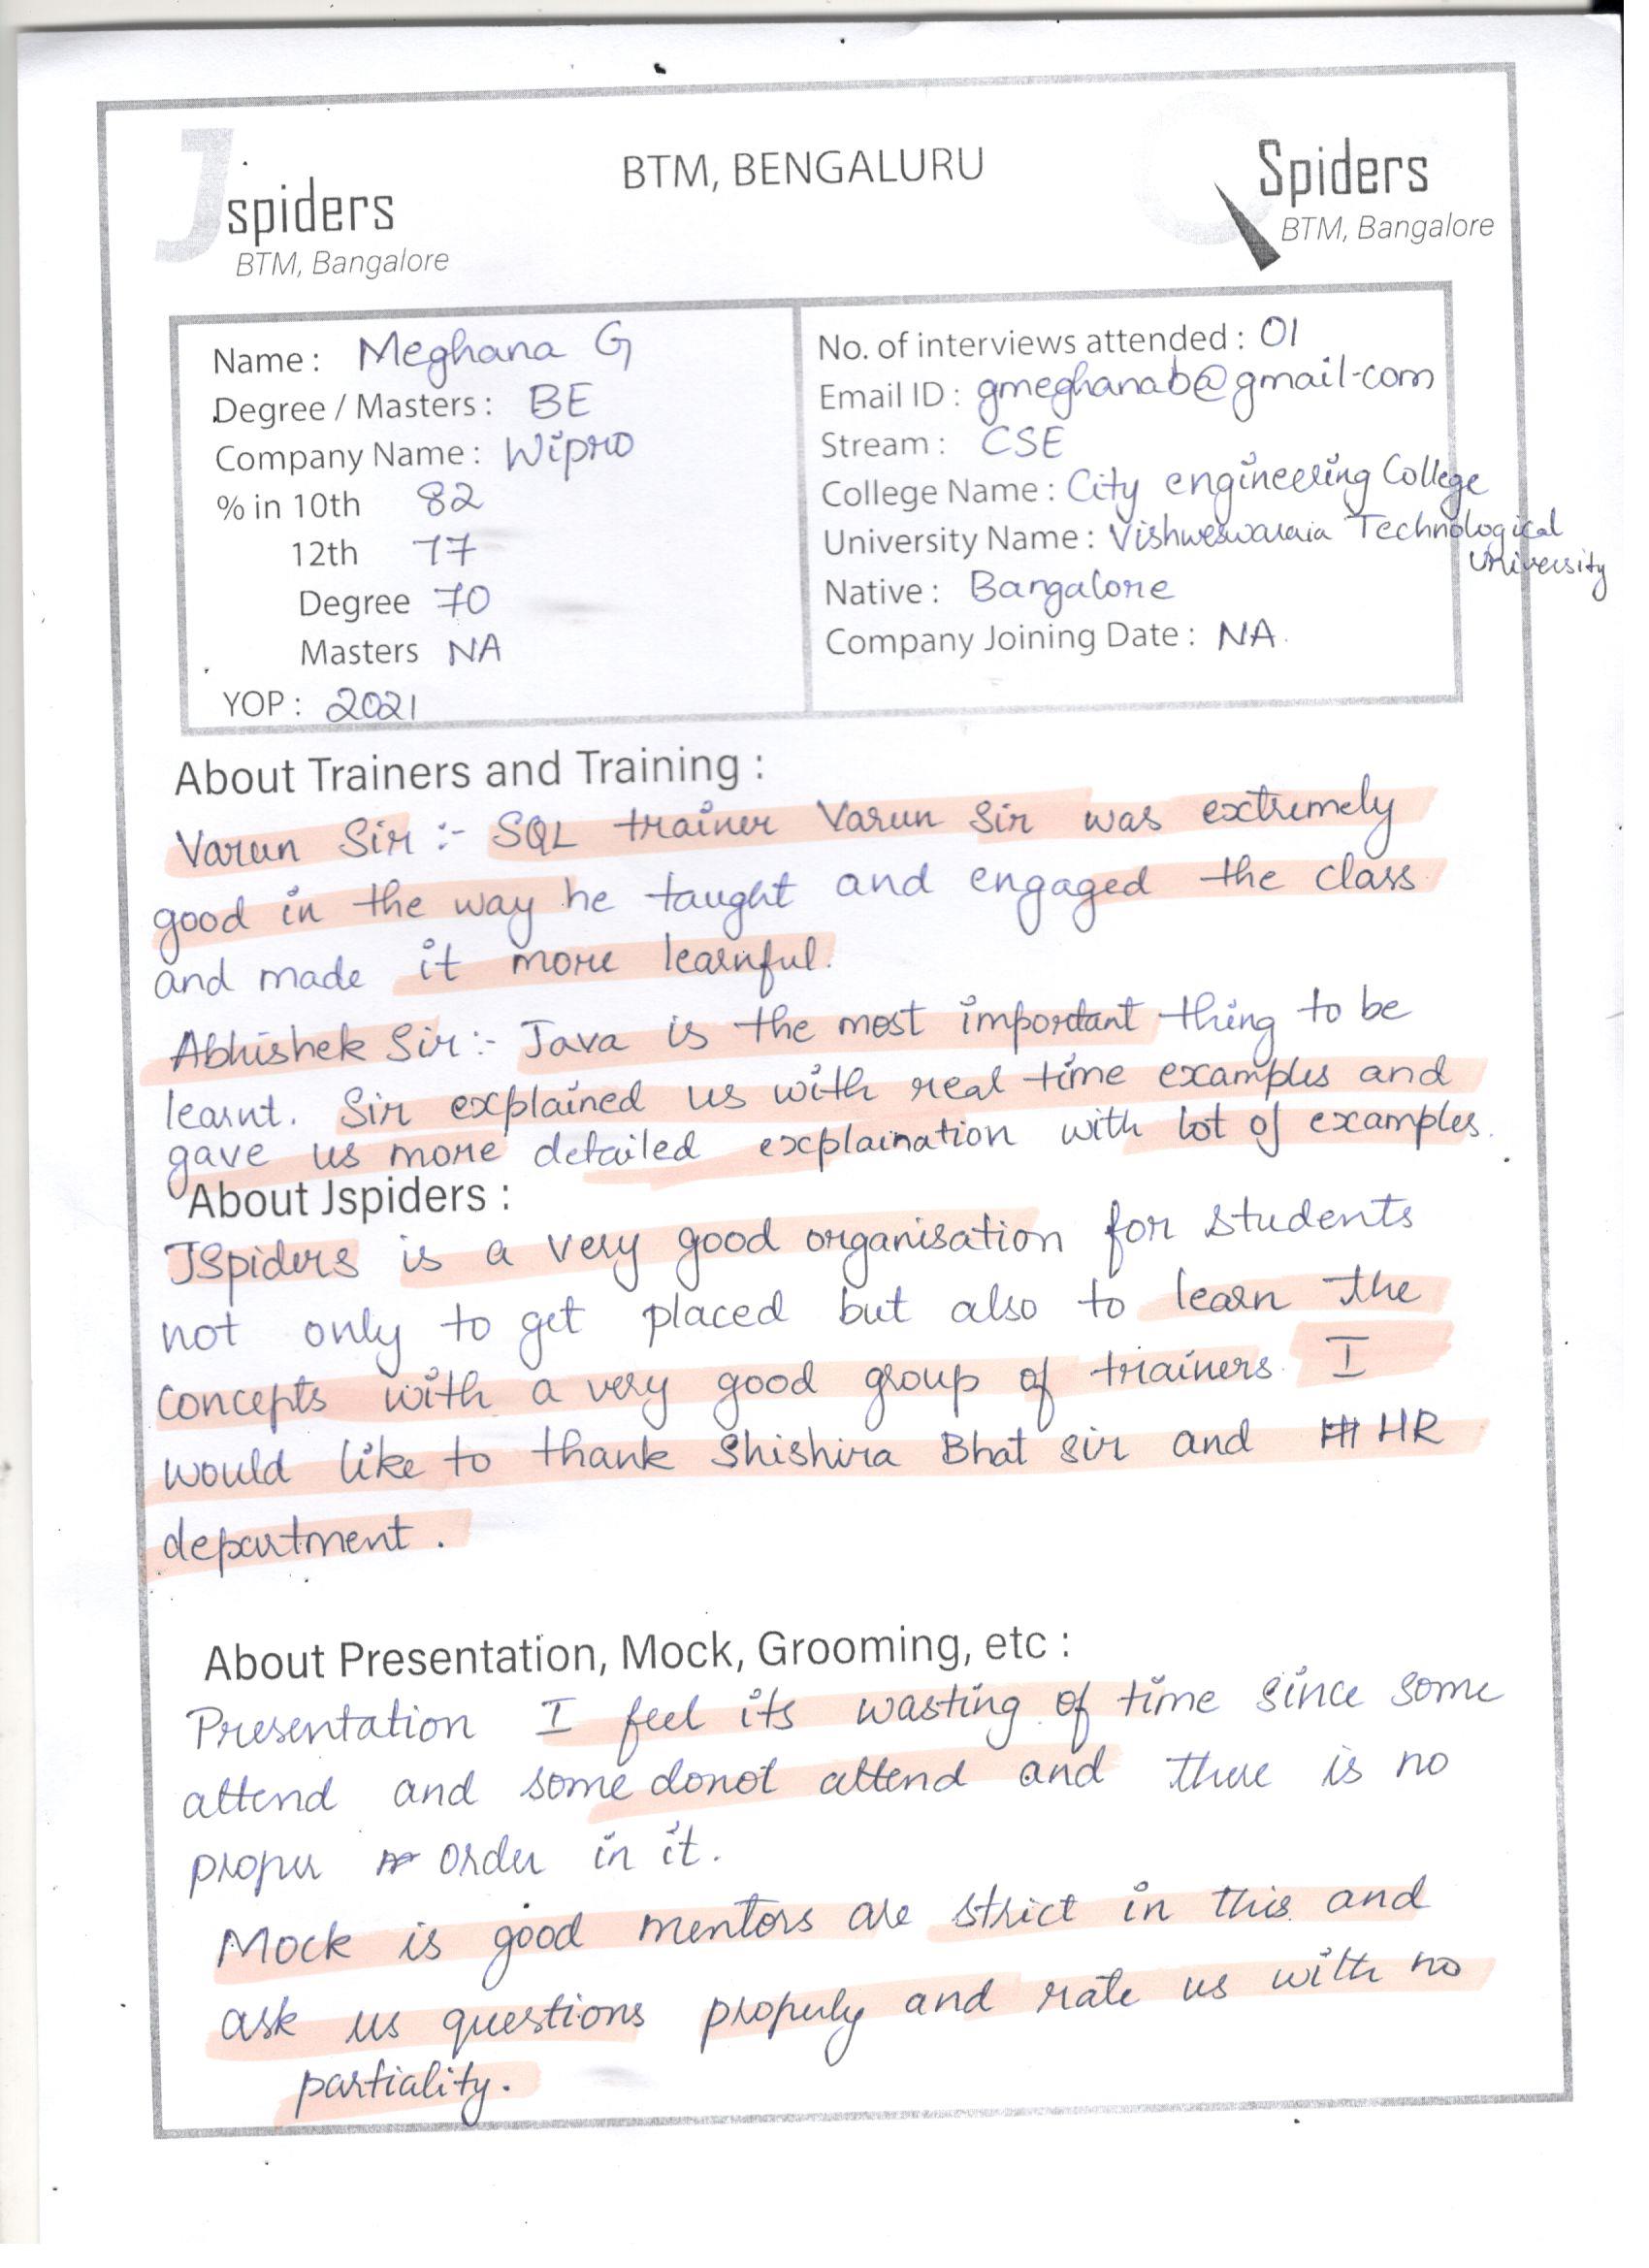 Jspiders
BTM, Bangalore
BTM, BENGALURU
QSpiders
BTM, Bangalore
Name : Meghana G
Degree / Masters : BE
Company Name : Wipro
% in 10th 82
12th 77
Degree 70
Masters NA
YOP : 2021
No. of interviews attended : 01
Email ID : gmeghanab@gmail.com
Stream : CSE
College Name : City engineering College
University Name : Vishweswaraia Technological
University
Native : Bangalore
Company Joining Date : NA.
About Trainers and Training :
Varun Sir :- SQL trainer Varun Sir was extremely
good in the way he taught and engaged the class
and made it more learnful.
Abhishek Sir :- Java is the most important thing to be
learnt. Sir explained us with real time examples and
gave us more detailed explaination with lot of examples.
About Jspiders :
JSpiders is a very good organisation for students
not only to get placed but also to learn the
concepts with a very good group of trainers. I
would like to thank Shishira Bhat sir and HR
department.
About Presentation, Mock, Grooming, etc :
Presentation I feel its wasting of time since some
attend and some donot attend and there is no
proper order in it.
Mock is good mentors are strict in this and
ask us questions properly and rate us with no
partiality.